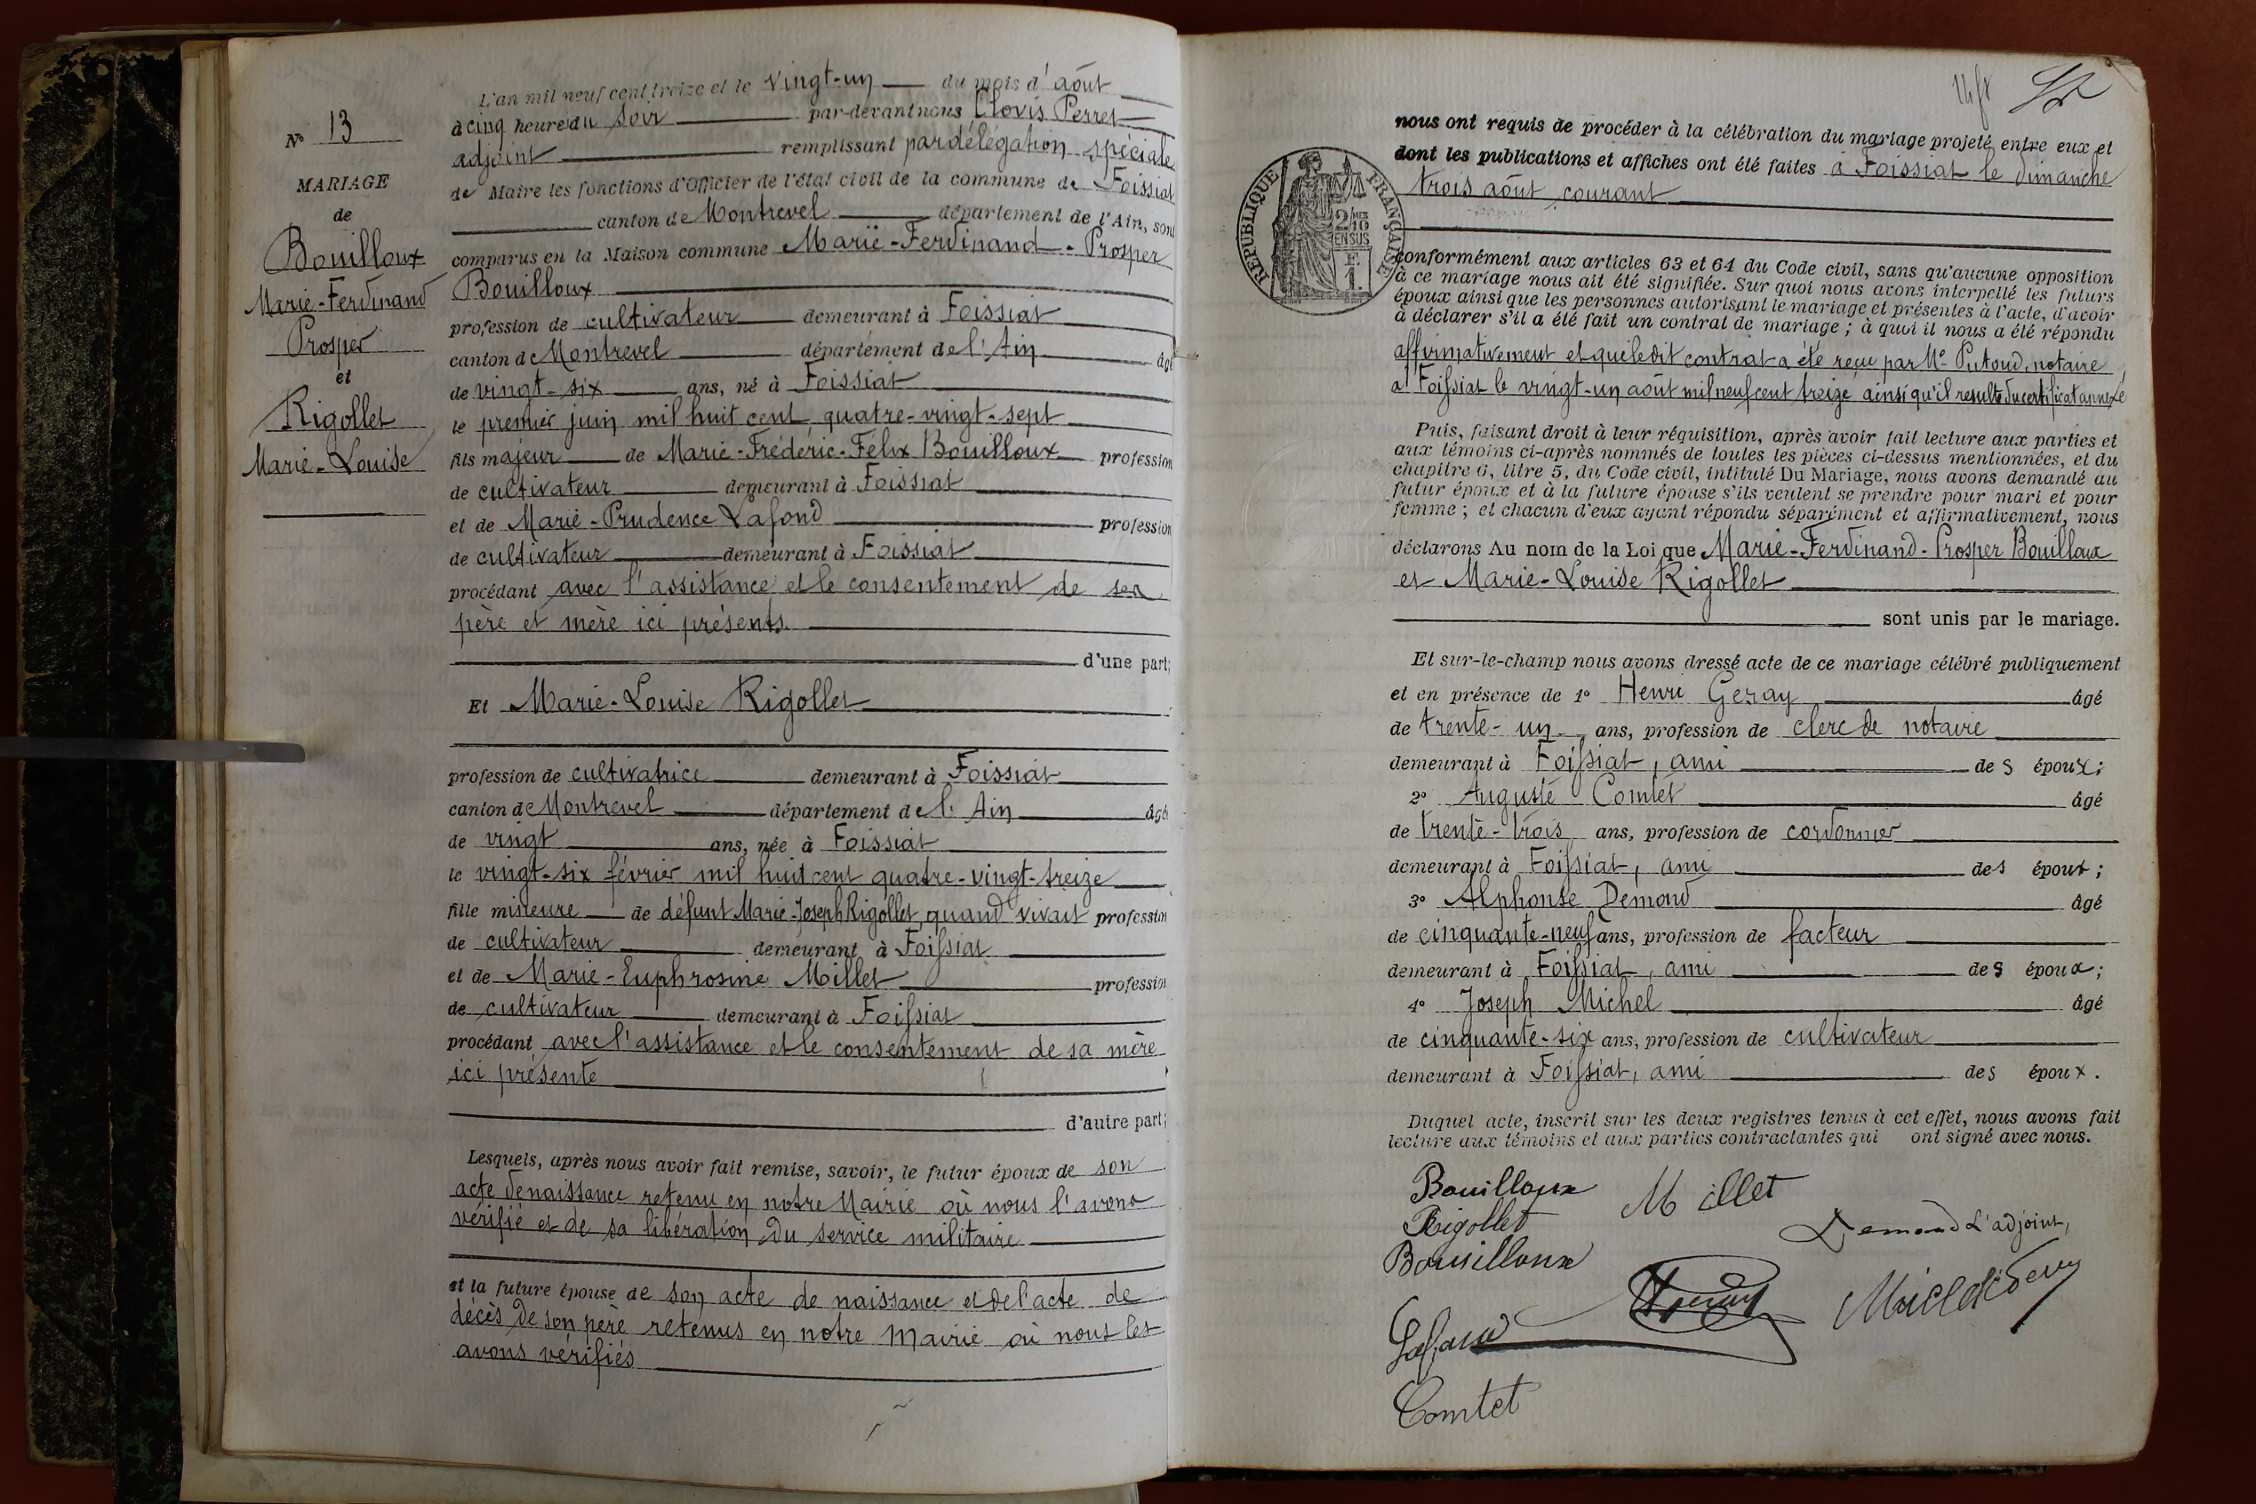 N° 13
MARIAGE
de
Bouilloux
Marie-Ferdinand
Prosper
et
Rigollet
Marie-Louise
L'an mil neuf cent treize et le vingt-un du mois d'août
à cinq heure du soir par-devant nous Clovis Perret
adjoint remplissant par délégation spéciale
de Maire les fonctions d'Officier de l'état civil de la commune de Foissiat
canton de Montrevel département de l'Ain, sont
comparus en la Maison commune Marie-Ferdinand-Prosper
Bouilloux
profession de cultivateur demeurant à Foissiat
canton de Montrevel département de l'Ain âgé
de vingt-six ans, né à Foissiat
le premier juin mil huit cent quatre-vingt-sept
fils majeur de Marie-Frédéric-Félix Bouilloux profession
de cultivateur demeurant à Foissiat
et de Marie-Prudence Lafond profession
de cultivateur demeurant à Foissiat
procédant avec l'assistance et le consentement de ses
père et mère ici présents.
d'une part;
Et Marie-Louise Rigollet
profession de cultivatrice demeurant à Foissiat
canton de Montrevel département de l'Ain âgé
de vingt ans, née à Foissiat
le vingt-six février mil huit cent quatre-vingt-treize
fille mineure de défunt Marie-Joseph Rigollet, quand vivait profession
de cultivateur demeurant à Foissiat
et de Marie-Euphrosine Millet profession
de cultivateur demeurant à Foissiat
procédant avec l'assistance et le consentement de sa mère
ici présente
d'autre part;
Lesquels, après nous avoir fait remise, savoir, le futur époux de son
acte de naissance retenu en notre Mairie où nous l'avons
vérifié et de sa libération du service militaire
et la future épouse de son acte de naissance et de l'acte de
décès de son père retenus en notre Mairie où nous les
avons vérifiés
nous ont requis de procéder à la célébration du mariage projeté entre eux et
dont les publications et affiches ont été faites à Foissiat le dimanche
trois août courant
RÉPUBLIQUE FRANÇAISE
2/10
EN SUS
conformément aux articles 63 et 64 du Code civil, sans qu'aucune opposition
à ce mariage nous ait été signifiée. Sur quoi nous avons interpellé les futurs
époux ainsi que les personnes autorisant le mariage et présentes à l'acte, d'avoir
à déclarer s'il a été fait un contrat de mariage ; à quoi il nous a été répondu
affirmativement et que ledit contrat a été reçu par Me Putoud, notaire
à Foissiat le vingt-un août mil neuf cent treize ainsi qu'il résulte du certificat annexé
Puis, faisant droit à leur réquisition, après avoir fait lecture aux parties et
aux témoins ci-après nommés de toutes les pièces ci-dessus mentionnées, et du
chapitre 6, titre 5, du Code civil, intitulé Du Mariage, nous avons demandé au
futur époux et à la future épouse s'ils veulent se prendre pour mari et pour
femme ; et chacun d'eux ayant répondu séparément et affirmativement, nous
déclarons Au nom de la Loi que Marie-Ferdinand-Prosper Bouilloux
et Marie-Louise Rigollet
sont unis par le mariage.
Et sur-le-champ nous avons dressé acte de ce mariage célébré publiquement
et en présence de 1° Henri Geray âgé
de trente-un ans, profession de clerc de notaire
demeurant à Foissiat, ami des époux;
2° Auguste Comtet âgé
de trente-trois ans, profession de cordonnier
demeurant à Foissiat, ami des époux;
3° Alphonse Demoud âgé
de cinquante-neuf ans, profession de facteur
demeurant à Foissiat, ami des époux;
4° Joseph Michel âgé
de cinquante-six ans, profession de cultivateur
demeurant à Foissiat, ami des époux.
Duquel acte, inscrit sur les deux registres tenus à cet effet, nous avons fait
lecture aux témoins et aux parties contractantes qui ont signé avec nous.
Bouilloux Millet
Rigollet
Demoud L'adjoint,
Bouilloux
Lafond
Comtet